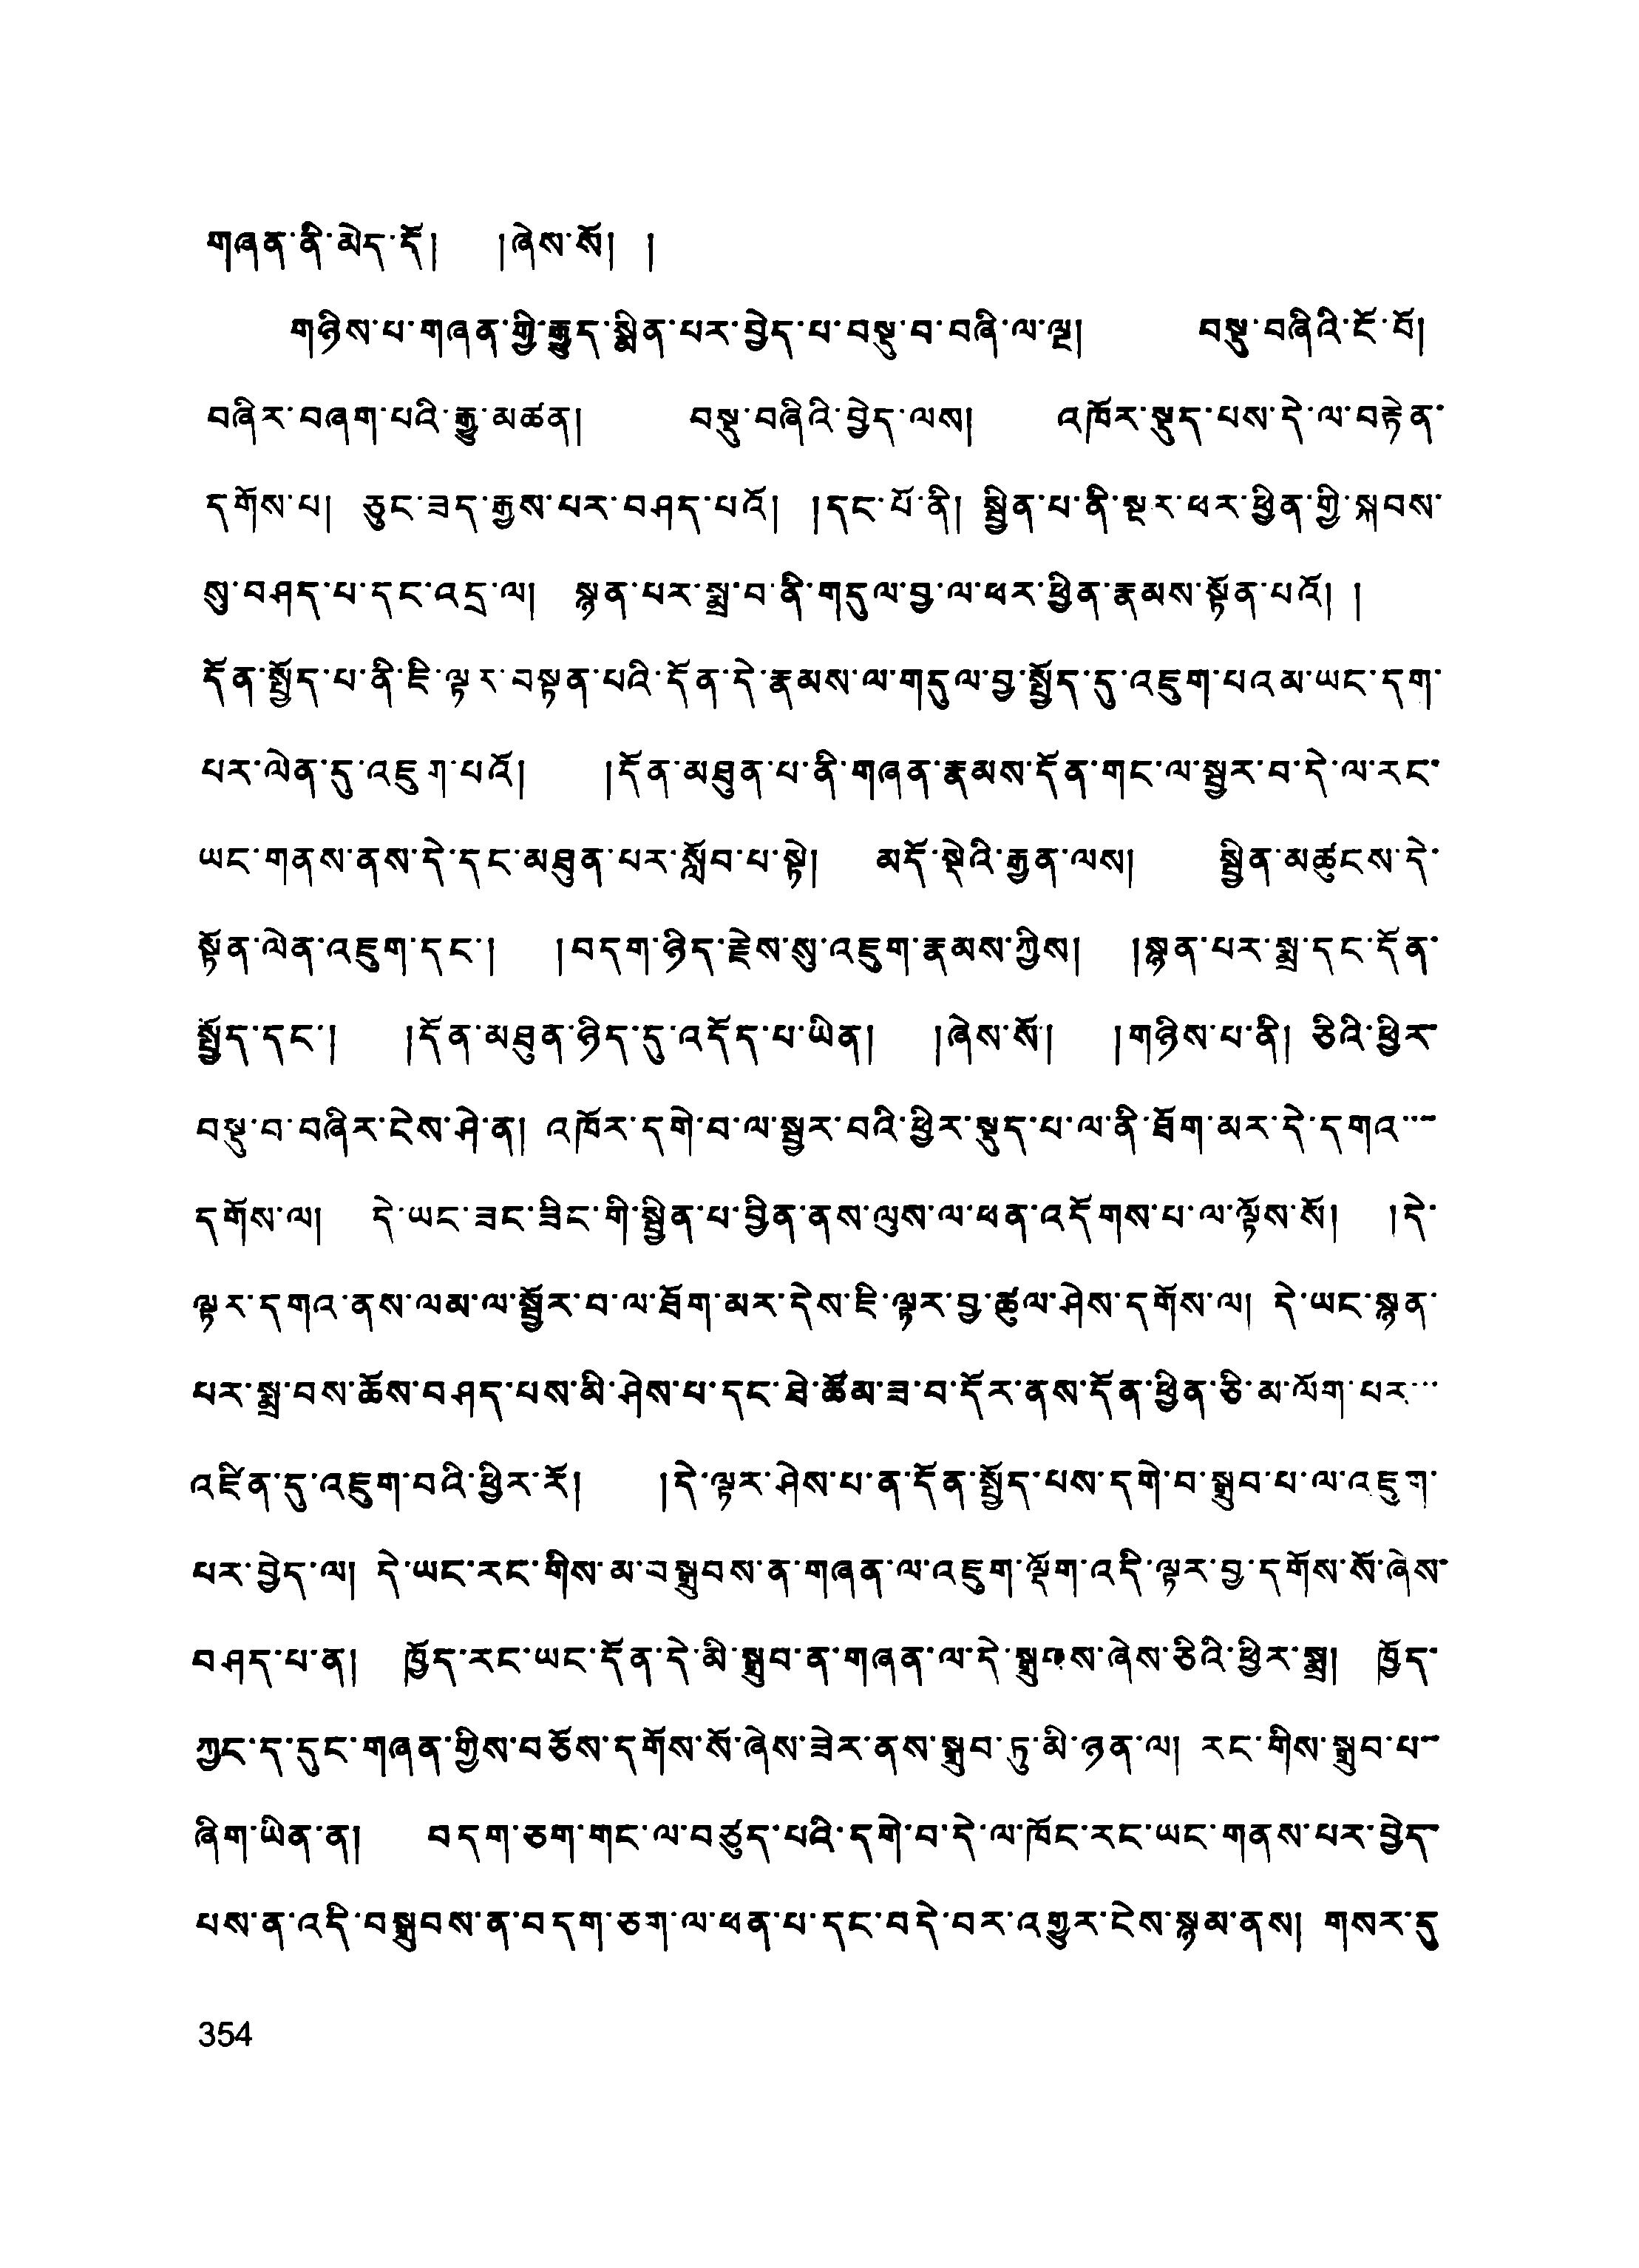 གཞན་ནི་མེད་དོ། །ཞེས་སོ། །
གཉིས་པ་གཞན་གྱི་རྒྱུད་སྨིན་པར་བྱེད་པ་བསྡུ་བ་བཞི་ལ་ལྔ། བསྡུ་བཞིའི་ངོ་བོ།
བཞིར་བཞག་པའི་རྒྱུ་མཚན། བསྡུ་བཞིའི་བྱེད་ལས། འཁོར་སྡུད་པས་དེ་ལ་བརྟེན་
དགོས་པ། ཅུང་ཟད་རྒྱས་པར་བཤད་པའོ། །དང་པོ་ནི། སྦྱིན་པ་ནི་སྔར་ཕར་ཕྱིན་གྱི་སྐབས་
སུ་བཤད་པ་དང་འདྲ་ལ། སྙན་པར་སྨྲ་བ་ནི་གདུལ་བྱ་ལ་ཕར་ཕྱིན་རྣམས་སྟོན་པའོ། །
དོན་སྤྱོད་པ་ནི་ཇི་ལྟར་བསྟན་པའི་དོན་དེ་རྣམས་ལ་གདུལ་བྱ་སྤྱོད་དུ་འཇུག་པའམ་ཡང་དག་
པར་ལེན་དུ་འཇུག་པའོ། །དོན་མཐུན་པ་ནི་གཞན་རྣམས་དོན་གང་ལ་སྦྱར་བ་དེ་ལ་རང་
ཡང་གནས་ནས་དེ་དང་མཐུན་པར་སློབ་པ་སྟེ། མདོ་སྡེའི་རྒྱན་ལས། སྦྱིན་མཚུངས་དེ་
སྟོན་ལེན་འཇུག་དང་། །བདག་ཉིད་རྗེས་སུ་འཇུག་རྣམས་ཀྱིས། །སྙན་པར་སྨྲ་དང་དོན་
སྤྱོད་དང་། །དོན་མཐུན་ཉིད་དུ་འདོད་པ་ཡིན། །ཞེས་སོ། །གཉིས་པ་ནི། ཅིའི་ཕྱིར་
བསྡུ་བ་བཞིར་ངེས་ཤེ་ན། འཁོར་དགེ་བ་ལ་སྦྱར་བའི་ཕྱིར་སྡུད་པ་ལ་ནི་ཐོག་མར་དེ་དགའ་་་
དགོས་ལ། དེ་ཡང་ཟང་ཟིང་གི་སྦྱིན་པ་བྱིན་ནས་ལུས་ལ་ཕན་འདོགས་པ་ལ་ལྟོས་སོ། །དེ་
ལྟར་དགའ་ནས་ལམ་ལ་སྦྱོར་བ་ལ་ཐོག་མར་དེས་ཇི་ལྟར་བྱ་ཚུལ་ཤེས་དགོས་ལ། དེ་ཡང་སྙན་
པར་སྨྲ་བས་ཆོས་བཤད་པས་མི་ཤེས་པ་དང་ཐེ་ཚོམ་ཟ་བ་དོར་ནས་དོན་ཕྱིན་ཅི་མ་ལོག་པར་་་
འཛིན་དུ་འཇུག་བའི་ཕྱིར་རོ། །དེ་ལྟར་ཤེས་པ་ན་དོན་སྤྱོད་པས་དགེ་བ་སྒྲུབ་པ་ལ་འཇུག་
པར་བྱེད་ལ། དེ་ཡང་རང་གིས་མ་བསྒྲུབས་ན་གཞན་ལ་འཇུག་ལྡོག་འདི་ལྟར་བྱ་དགོས་སོ་ཞེས་
བཤད་པ་ན། ཁྱོད་རང་ཡང་དོན་དེ་མི་སྒྲུབ་ན་གཞན་ལ་དེ་སྒྲུབས་ཞེས་ཅིའི་ཕྱིར་སྨྲ། ཁྱོད་
ཀྱང་ད་དུང་གཞན་གྱིས་བཅོས་དགོས་སོ་ཞེས་ཟེར་ནས་སྒྲུབ་ཏུ་མི་ཉན་ལ། རང་གིས་སྒྲུབ་པ་་
ཞིག་ཡིན་ན། བདག་ཅག་གང་ལ་བཙུད་པའི་དགེ་བ་དེ་ལ་ཁོང་རང་ཡང་གནས་པར་བྱེད་
པས་ན་འདི་བསྒྲུབས་ན་བདག་ཅག་ལ་ཕན་པ་དང་བདེ་བར་འགྱུར་ངེས་སྙམ་ནས། གསར་དུ
354